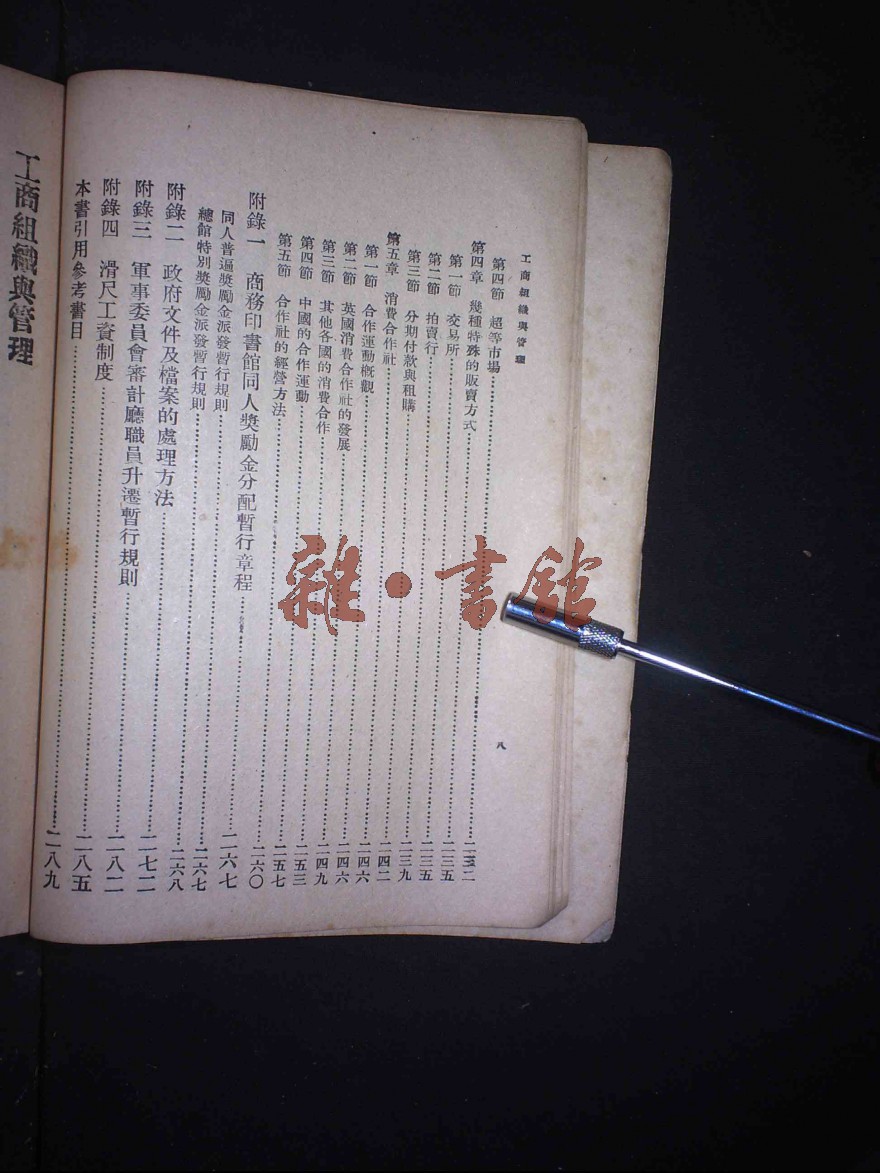 工商組織與管理
八
第四節 超等市場……二三二
第四章 幾種特殊的販賣方式……二三五
第一節 交易所……二三五
第二節 拍賣行……二三九
第三節 分期付款與租購……二四二
第五章 消費合作社……二四六
第一節 合作運動概觀……二四六
第二節 英國消費合作社的發展……二四九
第三節 其他各國的消費合作……二五三
第四節 中國的合作運動……二五七
第五節 合作社的經營方法……二六〇
附錄一 商務印書館同人獎勵金分配暫行章程……二六七
同人普遍獎勵金派發暫行規則……二六七
總館特別獎勵金派發暫行規則……二六八
附錄二 政府文件及檔案的處理方法……二七二
附錄三 軍事委員會審計廳職員升遷暫行規則……二八二
附錄四 滑尺工資制度……二八五
本書引用參考書目……二八九
工商組織與管理
雜·書館